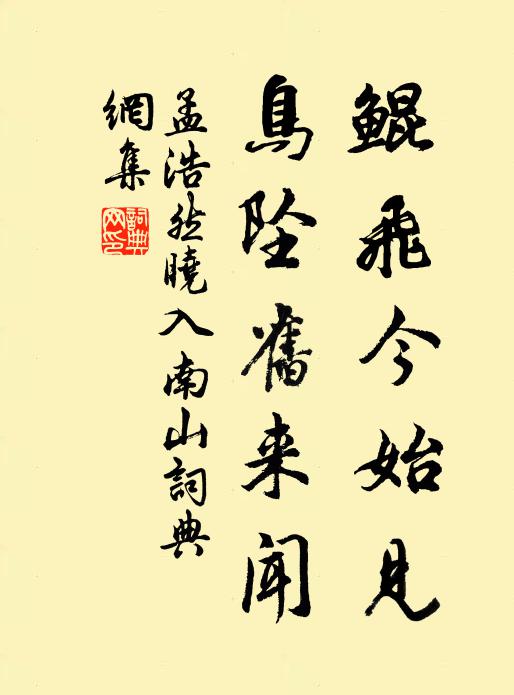 鯤飛今始見
鳥墜舊来聞
孟浩然曉入南山詞典
網集
詞典網印